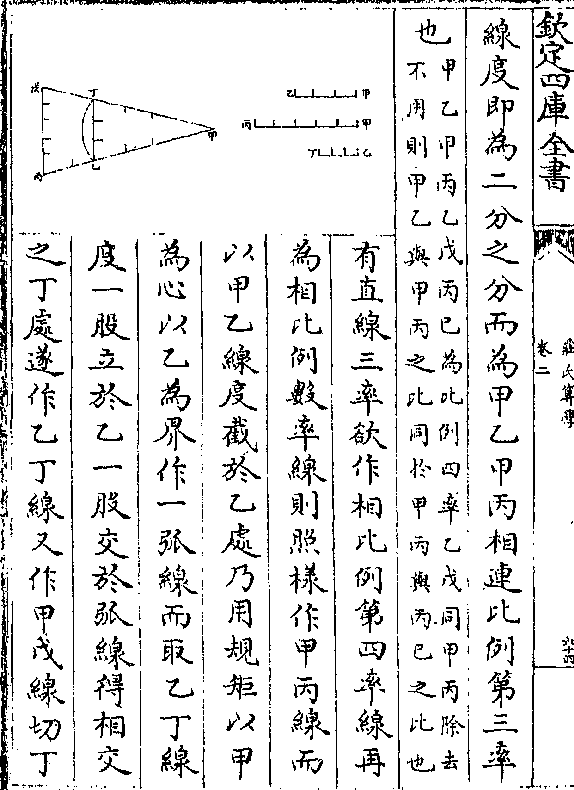 欽定四庫全書
莊氏算學
卷二
六十四
線度即為二分之分而為甲乙甲丙相連比例第三率
也甲乙甲丙乙戊丙已為比例四率乙戊同甲丙除去
不用則甲乙與甲丙之比同於甲丙與丙已之比也
有直線三率欲作相比例第四率線再
為相比例數率線則照樣作甲丙線而
以甲乙線度截於乙處乃用規矩以甲
為心以乙為界作一弧線而取乙丁線
度一股立於乙一股交於弧線得相交
之丁處遂作乙丁線又作甲戊線切丁
乙 甲
丙 甲
丁 乙
戊 丁 甲
丙 乙